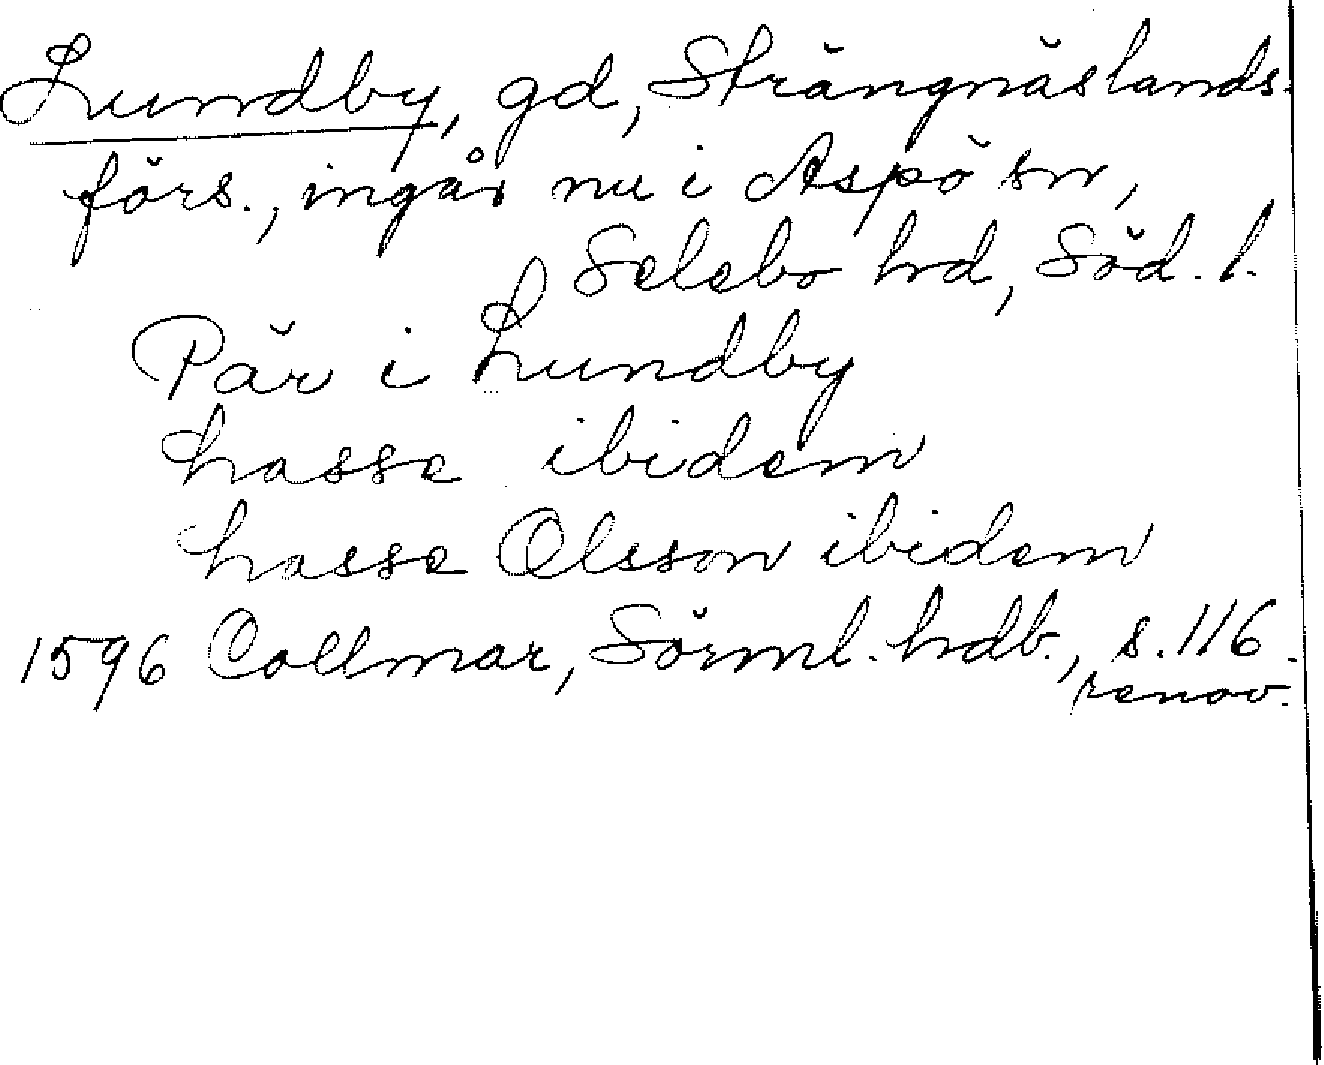 Lundby, gd, Strängnäs lands-
förs., ingår nu i Aspö sn,
Selebo hd, Söd. l.
Pär i Lundby
Lasse ibidem
Lasse Olsson ibidem
1596 Collmar, Sörml. hdb., s. 116.
renov.